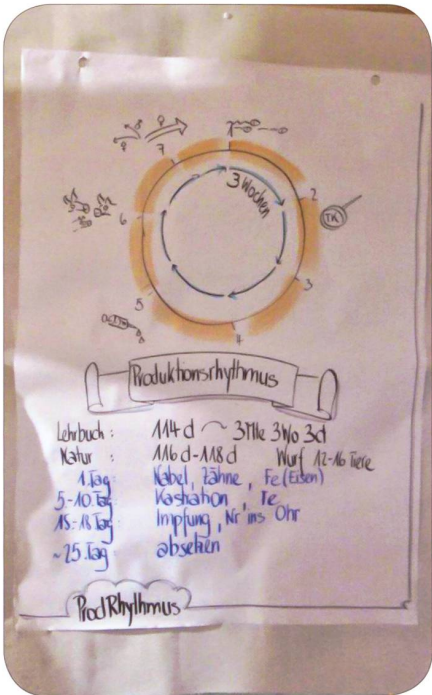 7
3 Wochen
2
TK
6
3
5
4
Produktionsrhythmus
Lehrbuch: 114 d ~ 3 Mte 3 Wo 3 d
Natur: 116 d - 118 d Wurf 12-16 Tiere
1. Tag: Nabel, Zähne, Fe (Eisen)
5-10. Tag: Kastration, Fe
15-18. Tag: Impfung, Nr ins Ohr
~25. Tag: absetzen
ProdRhythmus